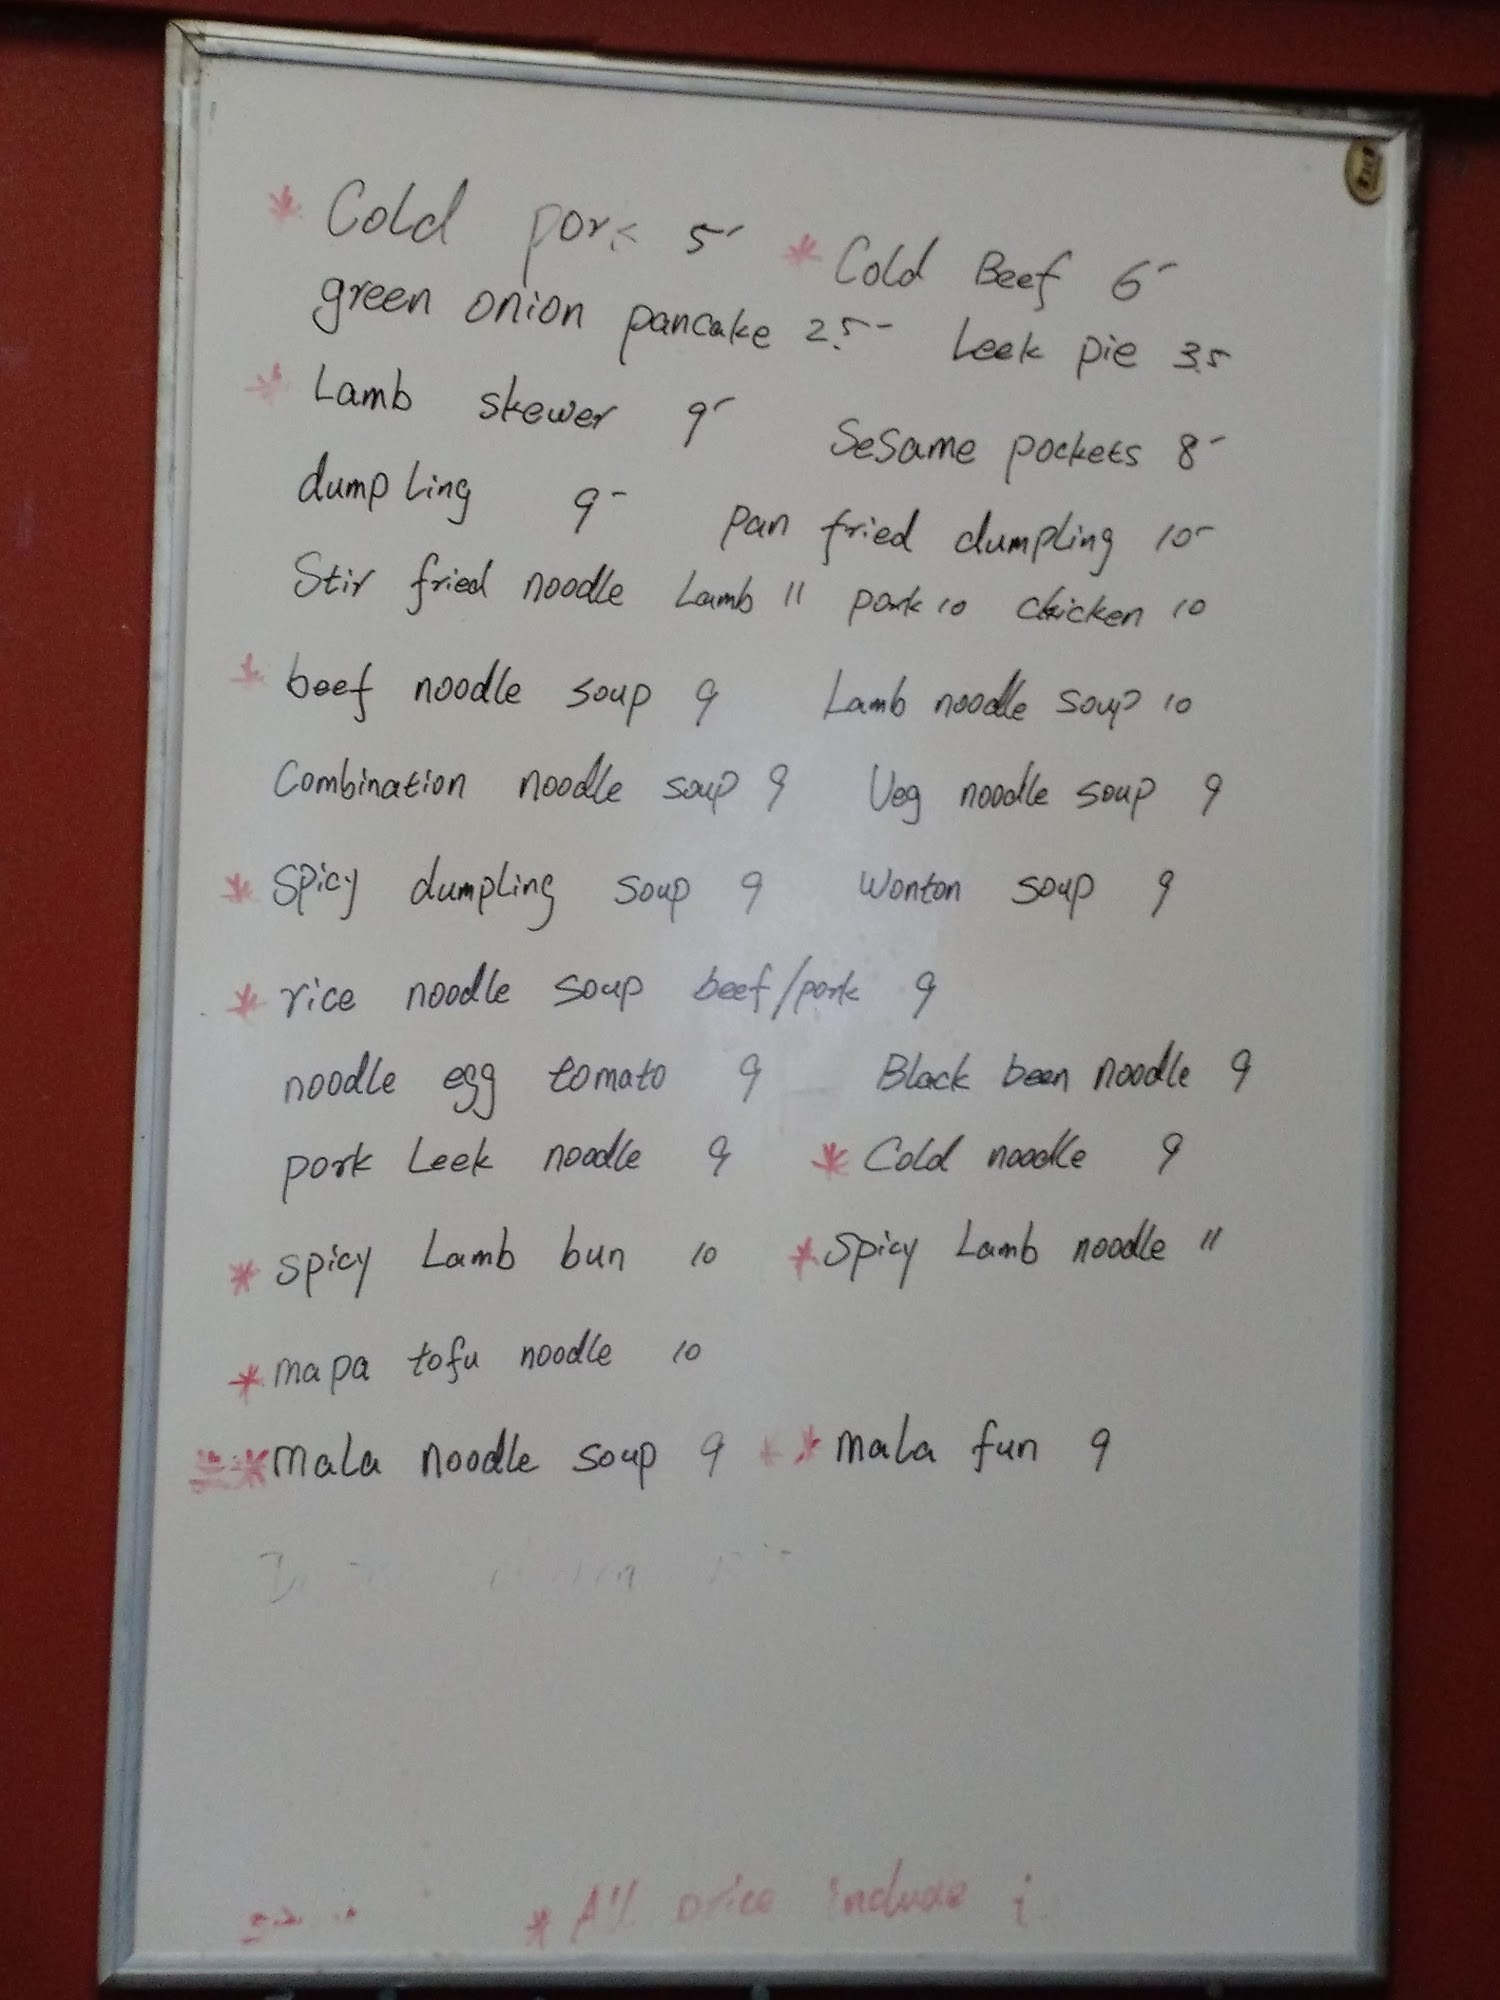 * Cold pork 5- * Cold Beef 6-
green onion pancake 2.5- Leek pie 3.5
* Lamb skewer 9- Sesame pockets 8-
dumpling 9- pan fried dumpling 10-
Stir fried noodle Lamb 11 pork 10 chicken 10
* beef noodle soup 9 Lamb noodle soup 10
Combination noodle soup 9 Veg noodle soup 9
* Spicy dumpling soup 9 Wonton soup 9
* rice noodle soup beef/pork 9
noodle egg tomato 9 Black bean noodle 9
pork Leek noodle 9 * Cold noodle 9
* spicy Lamb bun 10 * Spicy Lamb noodle 11
* mapa tofu noodle 10
** mala noodle soup 9 ** mala fun 9
* All price include